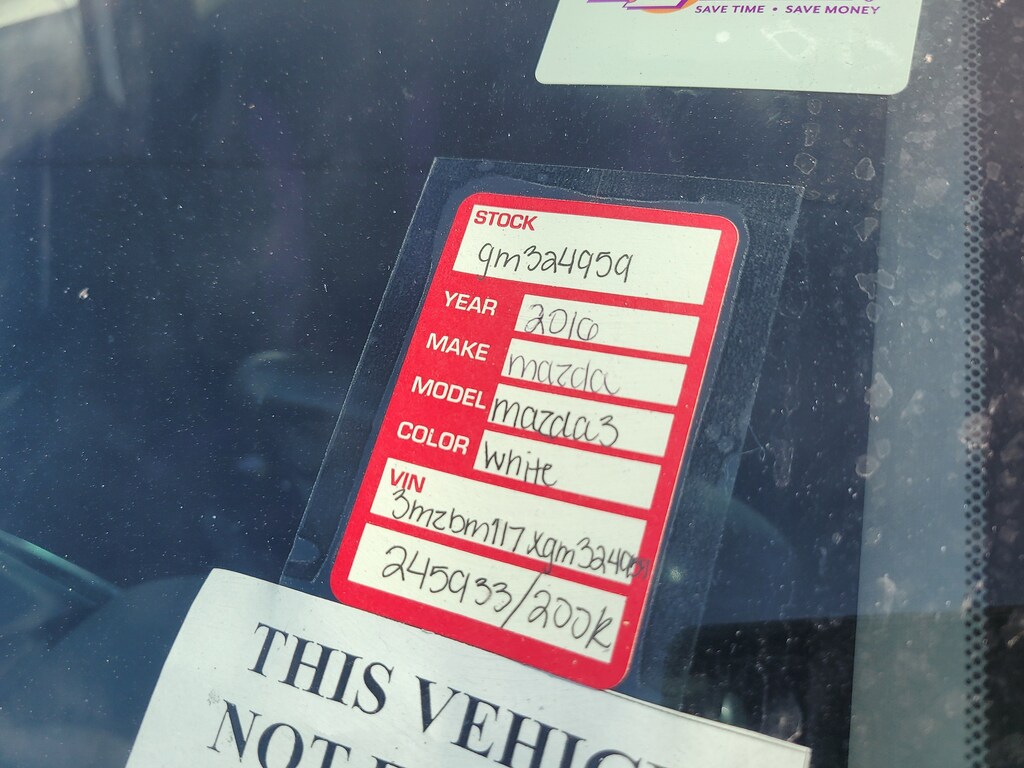 SAVE TIME • SAVE MONEY
STOCK
gm324959
YEAR 2016
MAKE mazda
MODEL mazda3
COLOR white
VIN
3mzbm117xgm324959
245933/200k
THIS VEHIC
NOT